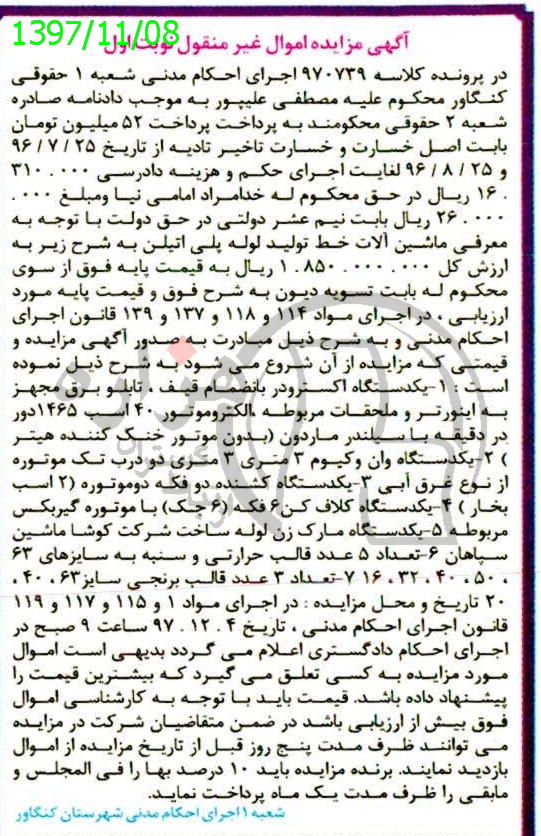 1397/11/08
آگهی مزایده اموال غیر منقول نوبت اول
در پرونده کلاسه ۹۷۰۷۳۹ اجرای احکام مدنی شعبه ۱ حقوقی
کنگاور محکوم علیه مصطفی علیپور به موجب دادنامه صادره
شعبه ۲ حقوقی محکومند به پرداخت پرداخت ۵۲ میلیون تومان
بابت اصل خسارت و خسارت تاخیر تادیه از تاریخ ۲۵ / ۷ / ۹۶
و ۲۵ / ۸ / ۹۶ لغایت اجرای حکم و هزینه دادرسی ۰۰۰ . ۳۱۰
. ۱۶ ریال در حق محکوم له خدامراد امامی نیا ومبلغ ۰۰۰ .
۰۰۰ . ۲۶ ریال بابت نیم عشر دولتی در حق دولت با توجه به
معرفی ماشین آلات خط تولید لوله پلی اتیلن به شرح زیر به
ارزش کل ۰۰۰ . ۰۰۰ . ۸۵۰ . ۱ ریال به قیمت پایه فوق از سوی
محکوم له بابت تسویه دیون به شرح فوق و قیمت پایه مورد
ارزیابی ، در اجرای مواد ۱۱۴ و ۱۱۸ و ۱۳۷ و ۱۳۹ قانون اجرای
احکام مدنی و به شرح ذیل مبادرت به صدور آگهی مزایده و
قیمتی که مزایده از آن شروع می شود به شرح ذیل نموده
است : ۱-یکدستگاه اکسترودر بانضمام قیف ، تابلو برق مجهز
به اینورتر و ملحقات مربوطه ،الکتروموتور ۴۰ اسب ۱۴۶۵دور
در دقیقه با سیلندر ماردون (بدون موتور خنک کننده هیتر
) ۲-یکدستگاه وان وکیوم ۳ متری ۳ متری دو درب تک موتوره
از نوع غرق آبی ۳-یکدستگاه کشنده دو فکه دوموتوره (۲ اسب
بخار) ۴-یکدستگاه کلاف کن۶ فکه (۶ جک) با موتوره گیربکس
مربوطه ۵-یکدستگاه مارک زن لوله ساخت شرکت کوشا ماشین
سپاهان ۶-تعداد ۵ عدد قالب حرارتی و سنبه به سایزهای ۶۳
، ۵۰ ، ۴۰ ، ۳۲ ، ۱۶ ۷-تعداد ۳ عدد قالب برنجی سایز۶۳ ، ۴۰ ،
۲۰ تاریخ و محل مزایده : در اجرای مواد ۱ و ۱۱۵ و ۱۱۷ و ۱۱۹
قانون اجرای احکام مدنی ، تاریخ ۴ . ۱۲ . ۹۷ ساعت ۹ صبح در
اجرای احکام دادگستری اعلام می گردد بدیهی است اموال
مورد مزایده به کسی تعلق می گیرد که بیشترین قیمت را
پیشنهاد داده باشد. قیمت باید با توجه به کارشناسی اموال
فوق بیش از ارزیابی باشد در ضمن متقاضیان شرکت در مزایده
می توانند ظرف مدت پنج روز قبل از تاریخ مزایده از اموال
بازدید نمایند. برنده مزایده باید ۱۰ درصد بها را فی المجلس و
مابقی را ظرف مدت یک ماه پرداخت نماید.
شعبه ۱ اجرای احکام مدنی شهرستان کنگاور